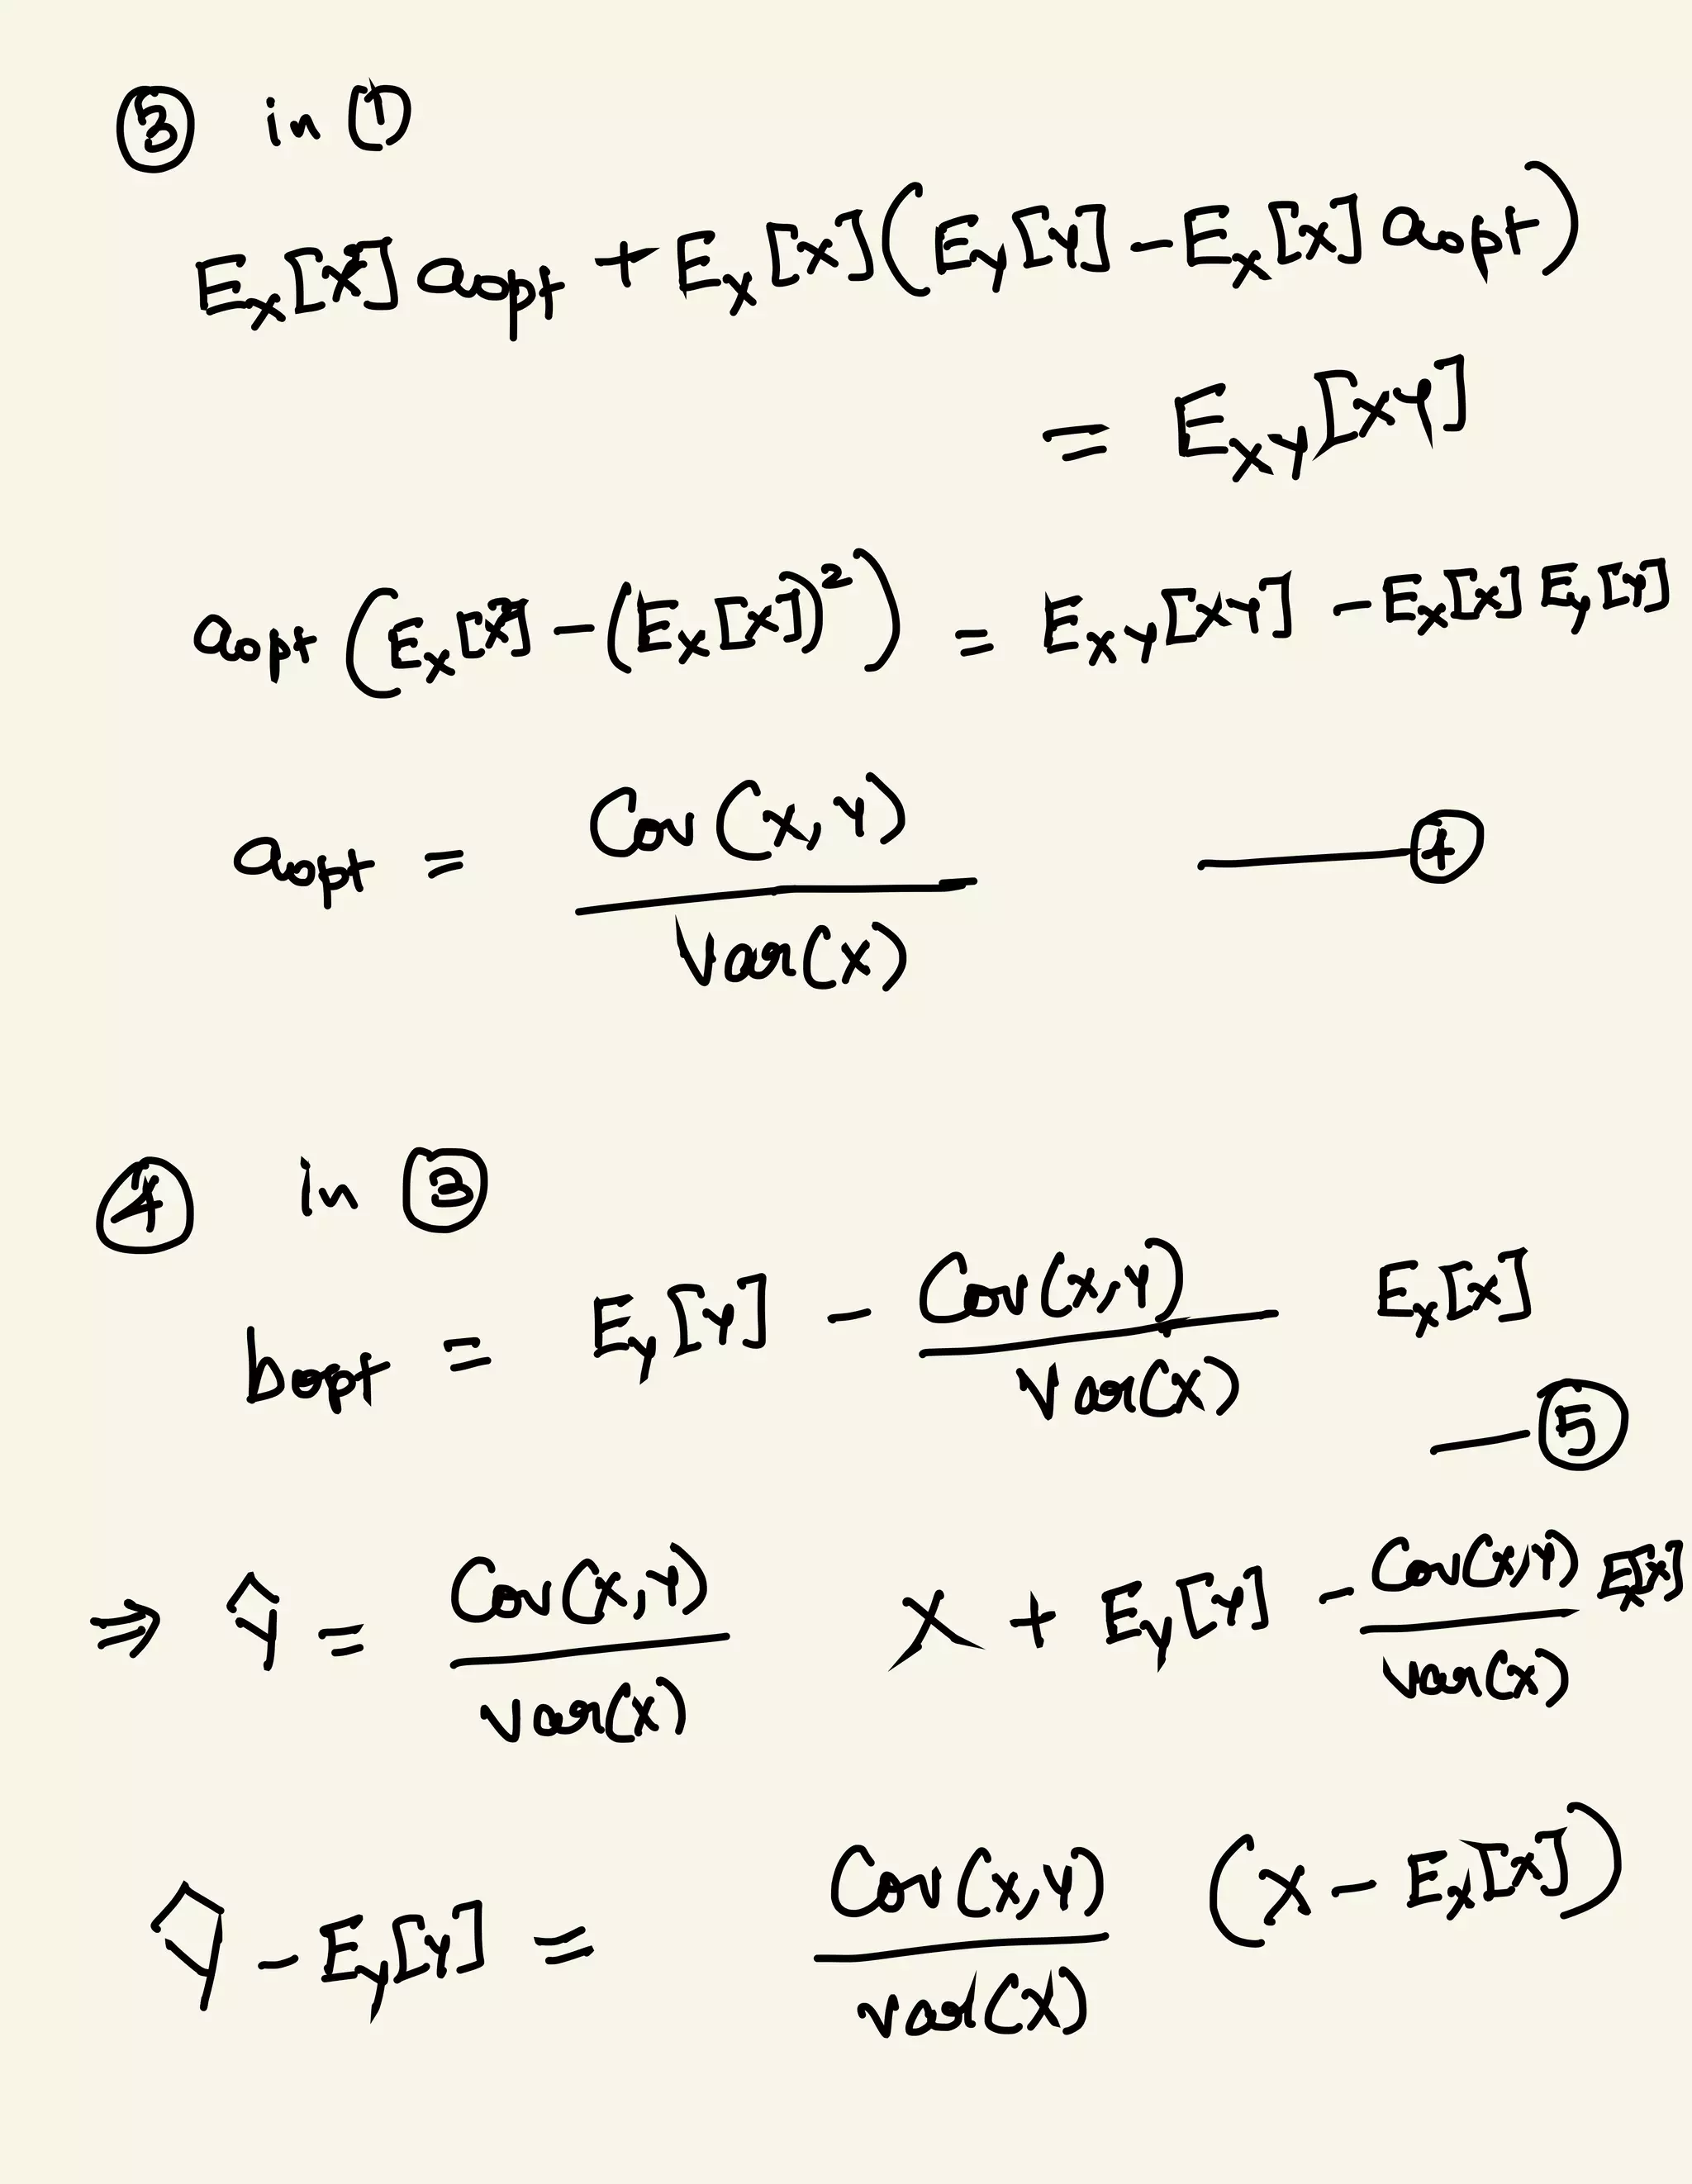 ③ in ①
E_X[X²] a_opt + E_X[X] (E_Y[Y] − E_X[X] a_opt)
= E_XY[XY]
a_opt (E_X[X²] − (E_X[X])²) = E_XY[XY] − E_X[X] E_Y[Y]
a_opt = Cov(X,Y) / Var(X) —— ④
④ in ③
b_opt = E_Y[Y] − Cov(X,Y) / Var(X) E_X[X]
— ⑤
⇒ Ŷ = Cov(X,Y) / Var(X) X + E_Y[Y] − Cov(X,Y) / Var(X) E_X[X]
Ŷ − E_Y[Y] = Cov(X,Y) / Var(X) (X − E_X[X])